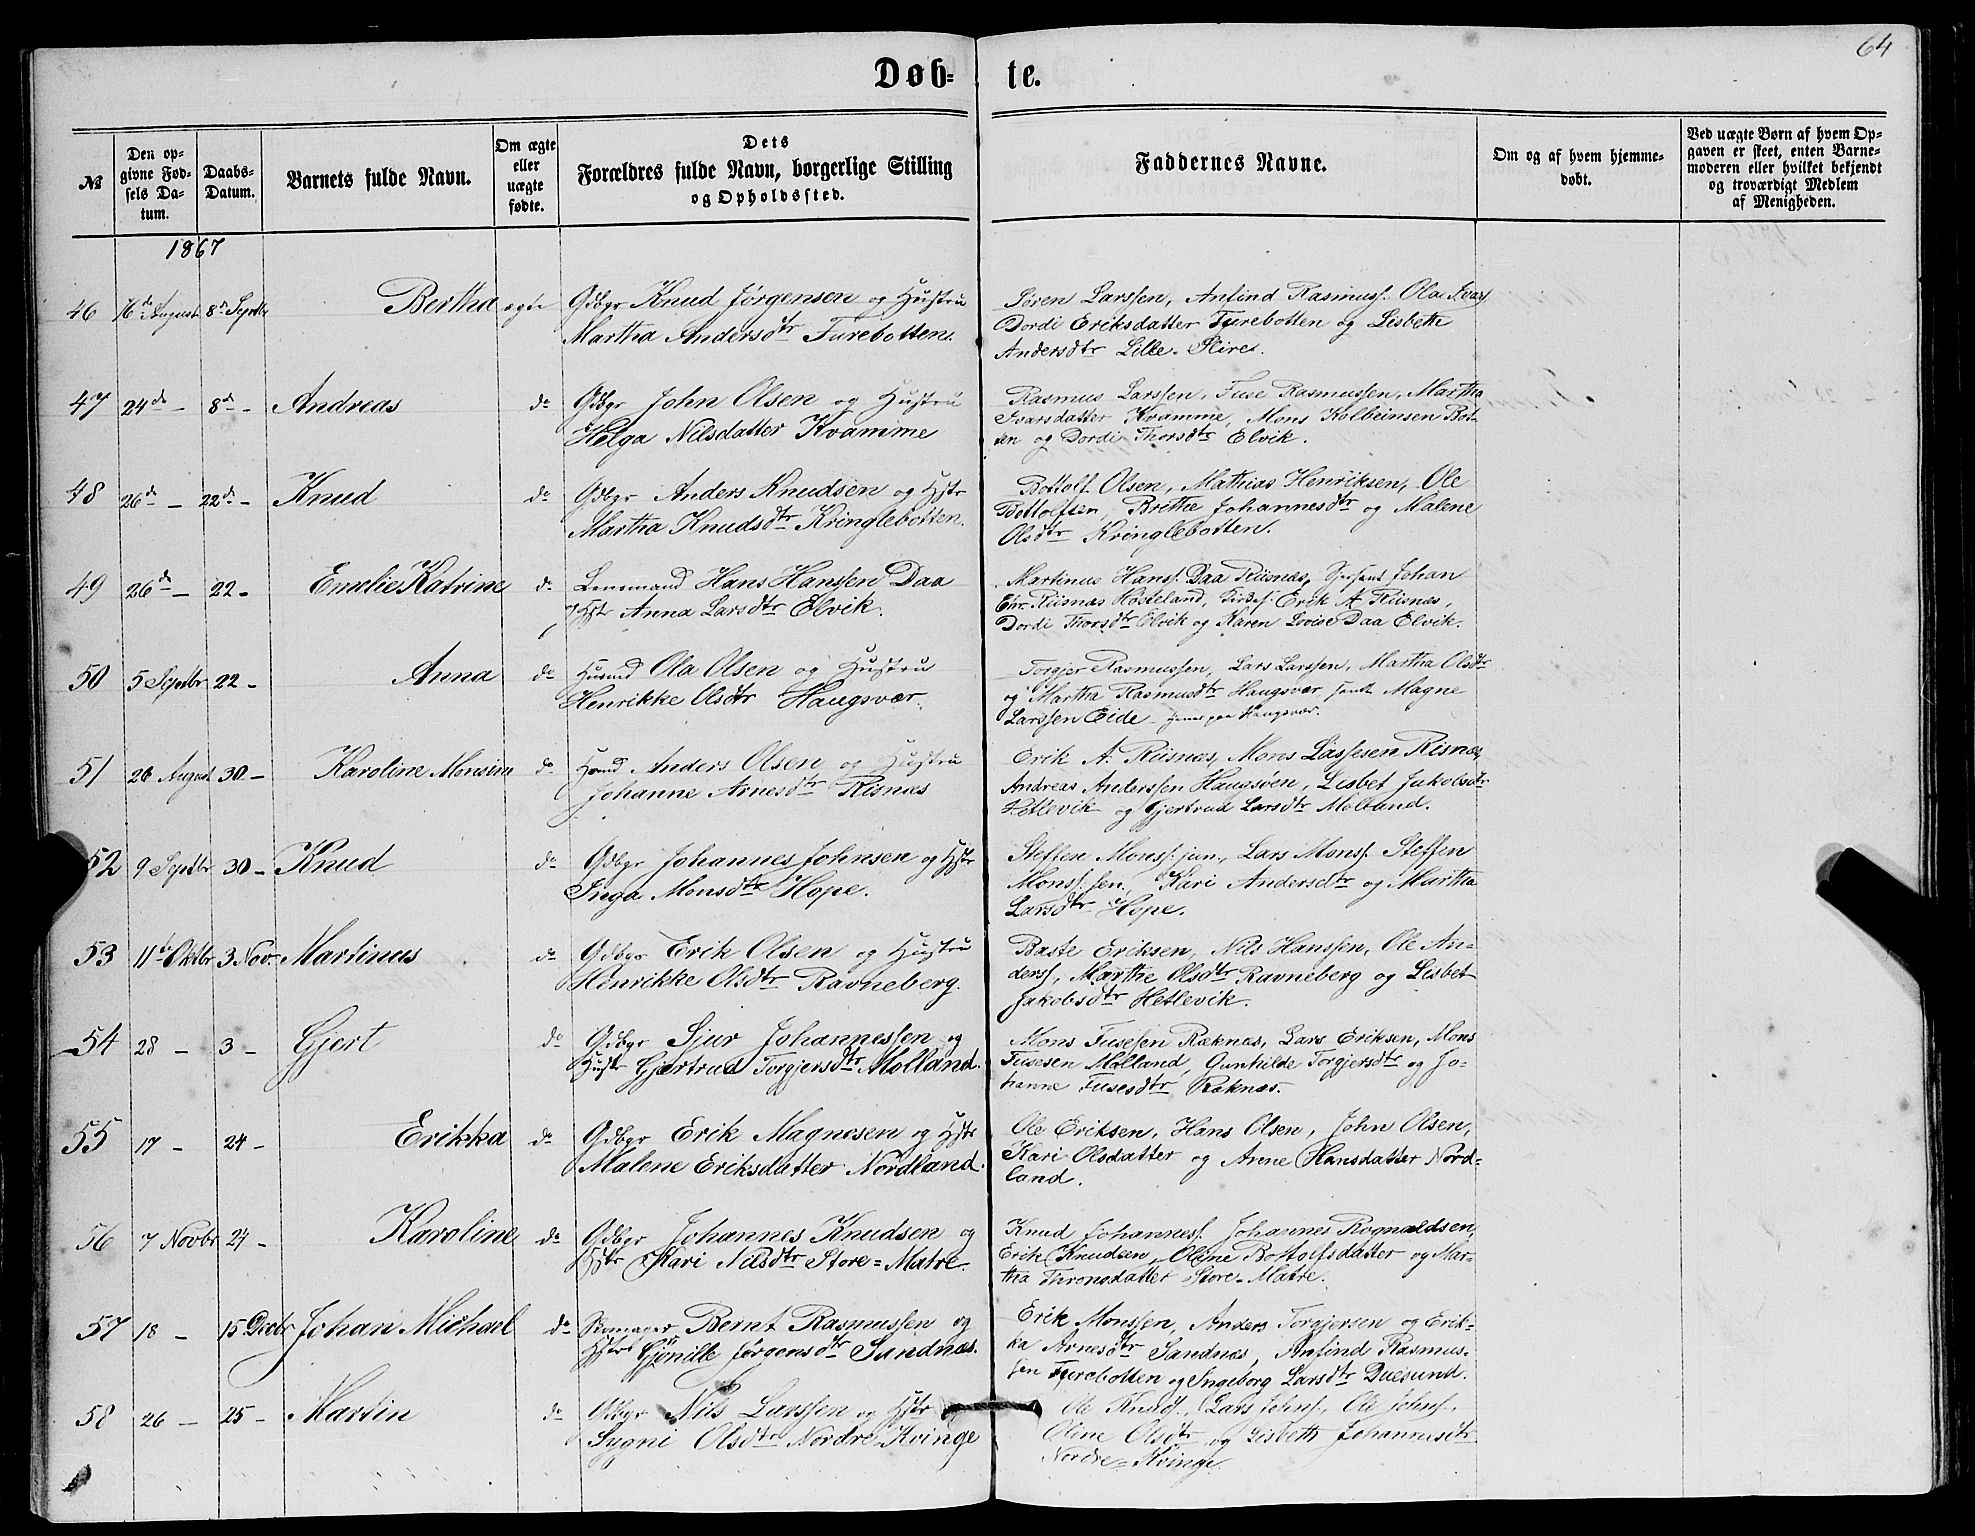 64
Døb- te.
№
Den op-
givne Fød-
sels Da-
tum.
Daabs-
Datum.
Barnets fulde Navn.
Om ægte
eller
uægte
fødte.
Dets
Forældres fulde Navn, borgerlige Stilling
og Opholdssted.
Faddernes Navne.
Om og af hvem hjemme-
døbt.
Ved uægte Børn af hvem Op-
gaven er skeet, enten Barne-
moderen eller hvilket bekjendt
og troværdigt Medlem
af Menigheden.
1867
46 16de August 8de Septbr Bertha ægte Gdbgr Knud Jørgensen og Hustru
Martha Andersdtr Furebotten.
Søren Larssen, Anfind Rasmuss. Ola Ivars
Dordi Eriksdatter Furebotten og Lisbeth
Andersdtr Lille-Slire.
47 24de - 8de - Andreas do Gdbgr John Olsen og Hustru
Helga Nilsdatter Kvamme
Rasmus Larssen, Fuse Rasmussen, Martha
Ivarsdatter Kvamme, Mons Kolbeinsen Bot-
ten og Dordi Thorsdtr Elvik.
48 26de - 22de - Knud do Gdbgr Anders Knudsen og Hstr
Martha Knudsdtr Kringlebotten.
Bottolf Olsen, Mathias Henriksen, Ole
Bottolfsen, Brithe Johannesdtr og Malene
Olsdtr Kringlebotten.
49 26de - 22 - Emelie Katrine do Lensmand Hans Hanssen Daa
Hstr Anna Larsdtr Elvik.
Martinus Hanss. Daa Riisnæs, Johan
Chr. Riisnæs Høsteland, Erik A. Riisnæs,
Dordi Thorsdtr Elvik og Karen Lovise Daa Elvik.
50 5 Septbr 22 - Anna do Husmd Ola Olsen og Hustru
Henrikke Olsdtr Haugsvær.
Torgjer Rasmussen, Lars Larssen, Martha Olsdtr
og Martha Rasmusdtr Haugsvær samt Magne
Larssen Eide - paa Haugsvær.
51 26 August 30 - Karoline Monsine do Hsmd Anders Olsen og Hustru
Johanne Arnesdtr Risnæs
Erik A. Riisnæs, Mons Lassesen Risnæs,
Andreas Anderssen Haugsøen, Lisbet Jakobsdtr
Hetlevik og Gjertrud Larsdtr Molland.
52 9 Septbr 30 - Knud do Gdbgr Johannes Johnsen og Hstr
Inga Monsdtr Hope.
Steffen Monss. jun., Lars Monss. Steffen
Monss. sen., Kari Andersdtr og Martha
Larsdtr Hope.
53 11te Oktbr 3 Novr Martinus do Gdbgr Erik Olsen og Hustru
Henrikke Olsdtr Ravneberg.
Baste Eriksen, Nils Hanssen, Ole An-
derss, Marthe Olsdtr Ravneberg og Lisbet
Jakobsdtr Hetlevik.
54 28 - 3 - Gjert do Gdbgr Sjur Johannessen og
Hustr Gjertrud Torgjersdtr Molland.
Mons Fusesen Ræknæs, Lars Eriksen, Mons
Fusesen Molland, Gunhilde Torgjersdtr og Jo-
hanne Fusesdtr Ræknæs.
55 17 - 24 - Erikka do Gdbgr Erik Magnesen og Hstr
Malene Eriksdatter Nordland.
Ole Eriksen, Hans Olsen, John Olsen,
Kari Olsdatter og Anne Hansdatter Nord-
land.
56 7 Novbr 24 - Karoline do Gdbgr Johannes Knudsen og
Hstr Kari Nilsdtr Store-Matre.
Knud Johanness. Johannes Rognaldsen,
Erik Knudsen, Oline Bottolfsdatter og Mar-
tha Thronsdatter Store-Matre.
57 18 - 15 Decbr Johan Michael do Skomager Bernt Rasmussen og
Hstr Gjønille Jørgensdtr Sandnæs.
Erik Monssen, Anders Torgjersen og Erik-
ka Arnesdtr Sandnæs, Anfind Rasmus-
sen Furebotten og Ingeborg Larsdtr Duesund.
58 26 - 25 - Martin do Gdbgr Nils Larssen og Hstr
Sygni Olsdtr Nordre Kvinge
Ole Knuds., Lars Johns., Ole Johns.,
Oline Olsdtr og Lisbeth Johannesdtr
Nordre-Kvinge